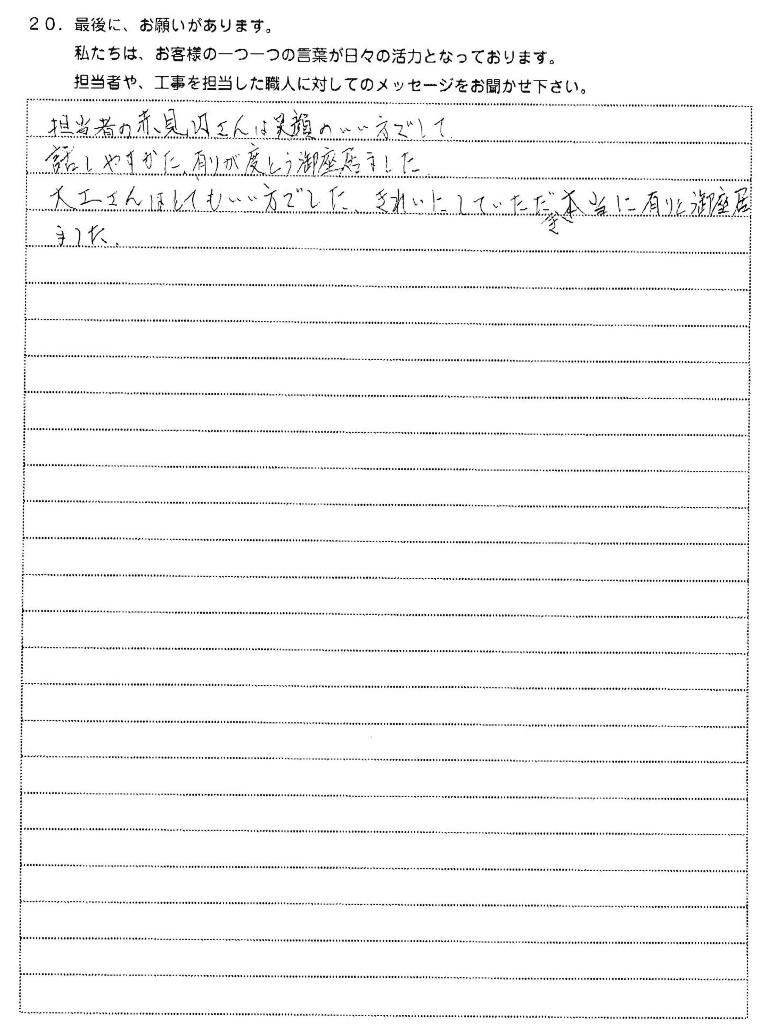 20．最後に、お願いがあります。
私たちは、お客様の一つ一つの言葉が日々の活力となっております。
担当者や、工事を担当した職人に対してのメッセージをお聞かせ下さい。
担当者の赤見内さんは笑顔のいい方でして
話しやすかた、有りが度とう御座居ました。
大工さんはとてもいい方でした、きれいにしていただき本当に有りと御座居
ました。